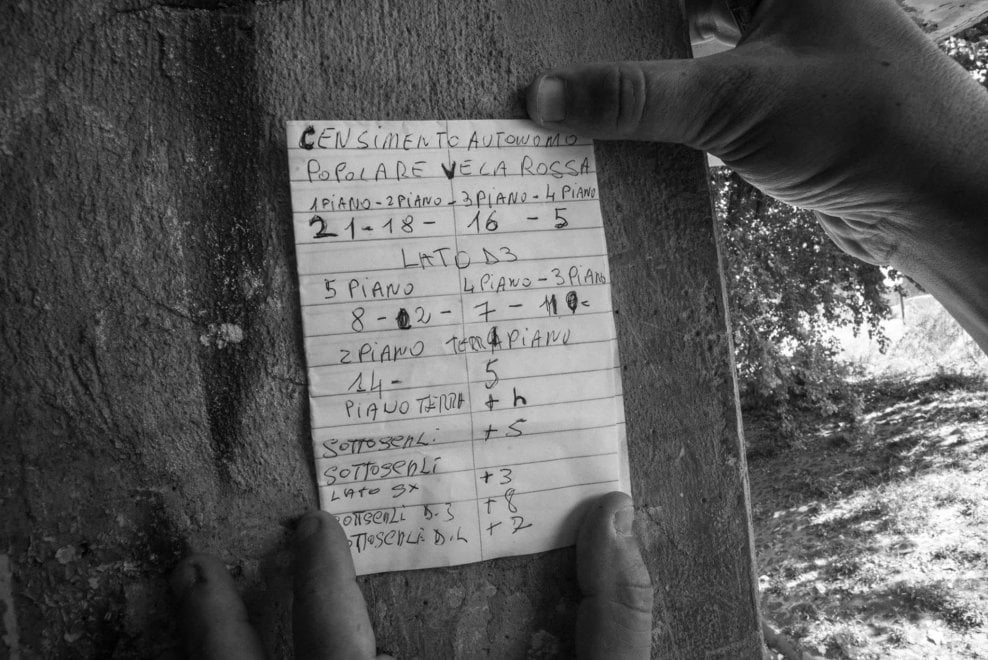 CENSIMENTO AUTONOMO
POPOLARE VELA ROSSA
1 PIANO - 2 PIANO - 3 PIANO - 4 PIANO
21 - 18 - 16 - 5
LATO D3
5 PIANO 4 PIANO - 3 PIANO
8 - 2 - 7 -
2 PIANO TERRA PIANO
14 - 5
PIANO TERRA + h
SOTTOSCALI +5
SOTTOSCALI
LATO SX +3
OTTSCALI D.3 +8
OTTOSCALI D.L +2